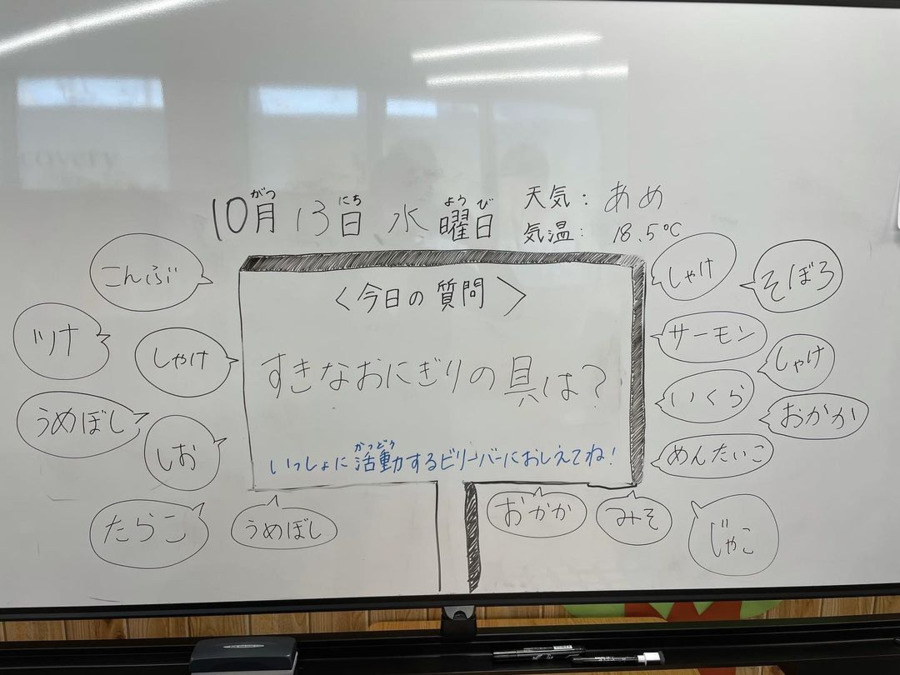 10月13日 水曜日
がつ
にち
ようび
天気：あめ
気温：18.5℃
〈今日の質問〉
すきなおにぎりの具は？
いっしょに活動するビリーバーにおしえてね！
かつどう
こんぶ
ツナ
しゃけ
うめぼし
しお
たらこ
うめぼし
しゃけ
そぼろ
サーモン
しゃけ
いくら
おかか
めんたいこ
おかか
みそ
じゃこ